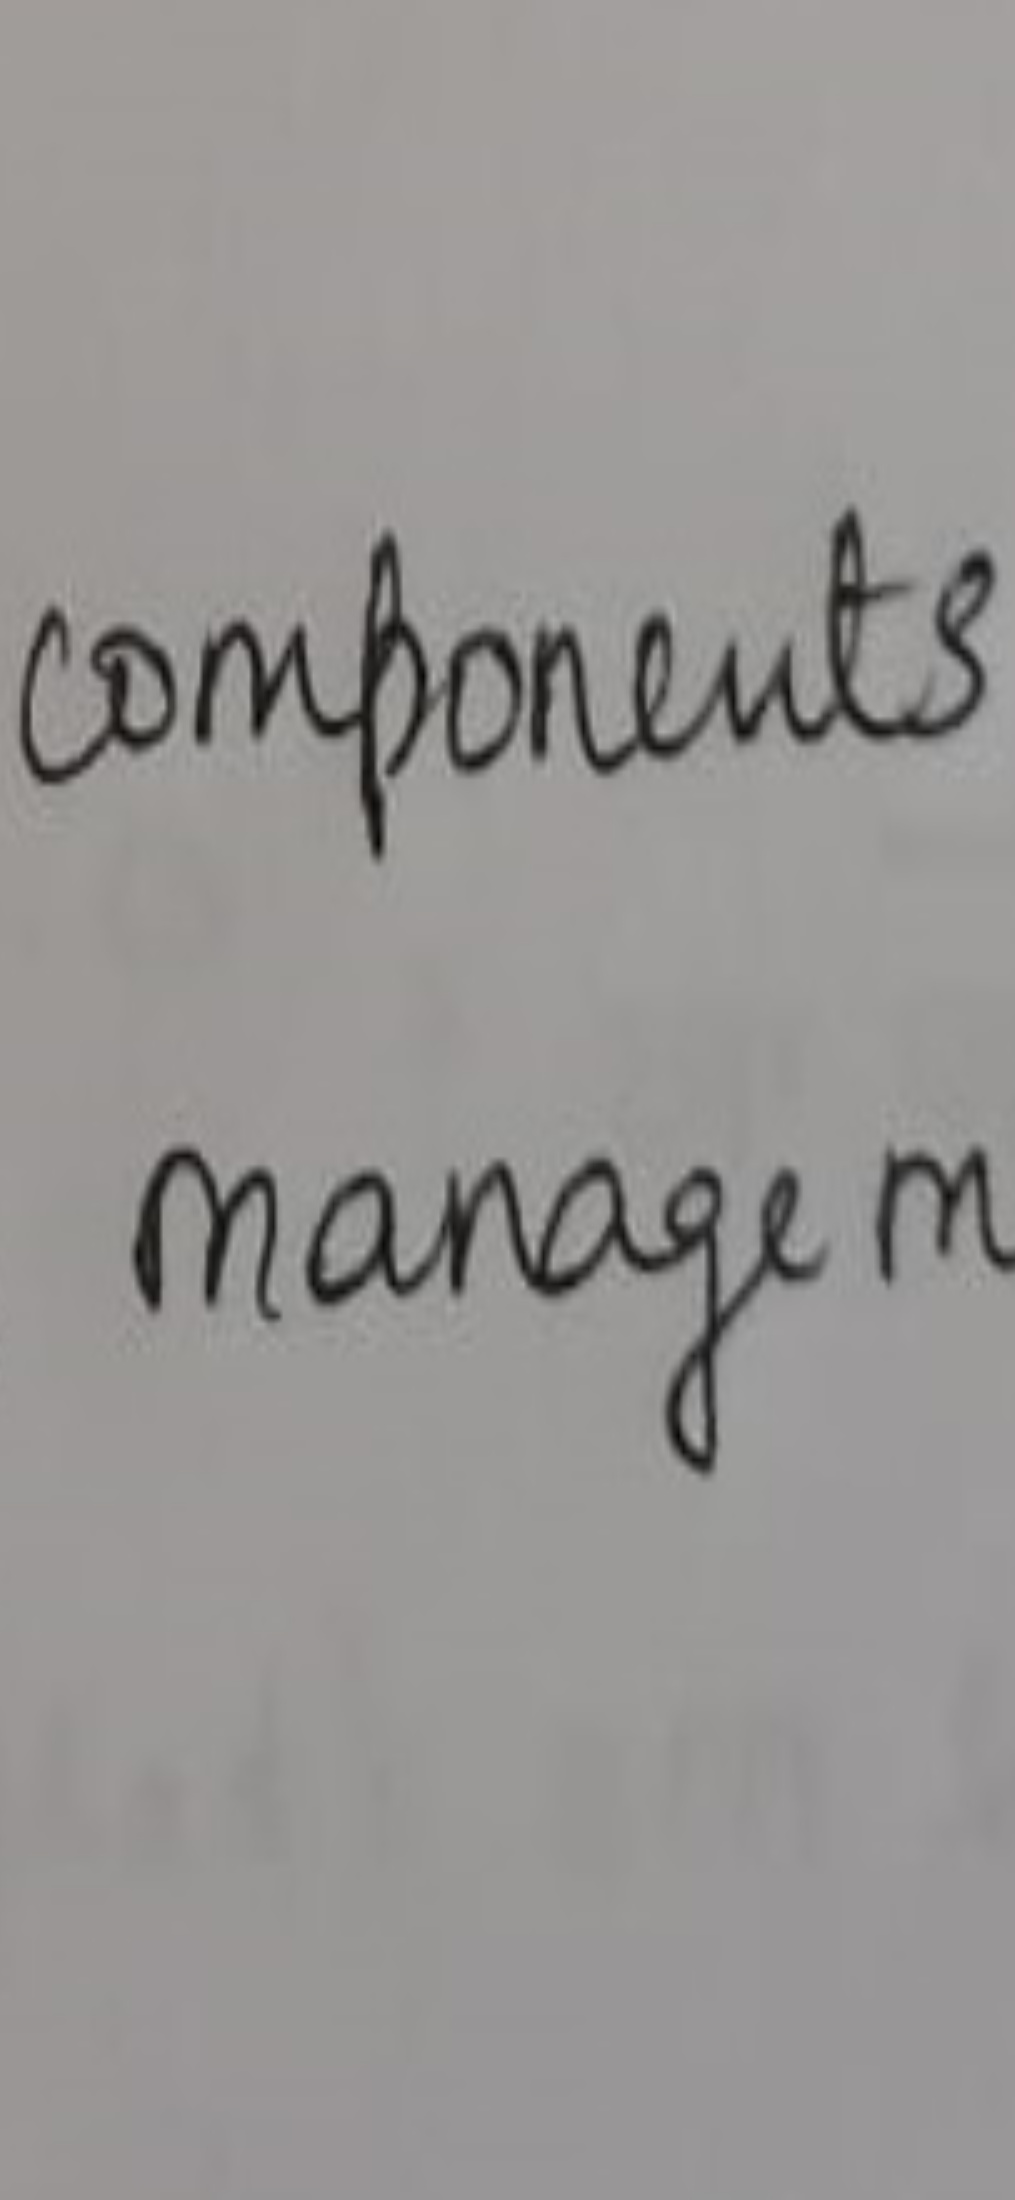 components
managem